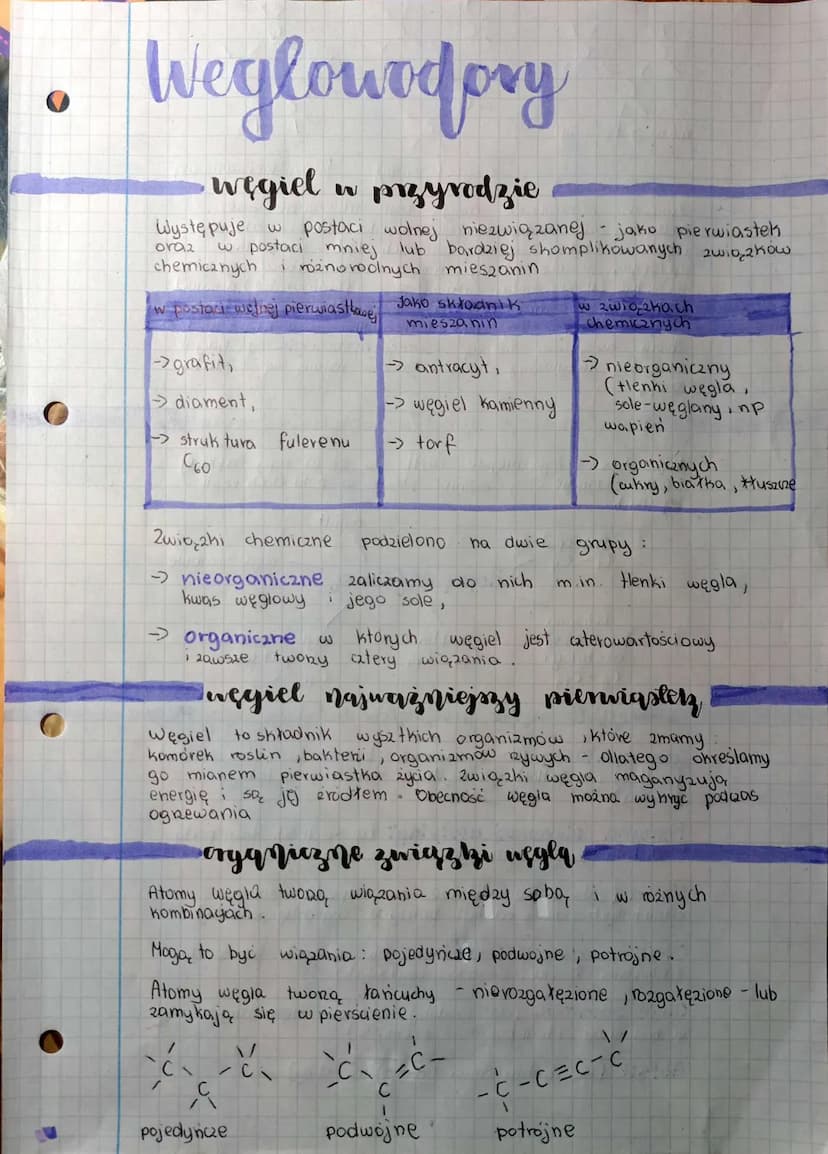 Węglowodory
węgiel w przyrodzie
Występuje w postaci wolnej niezwiązanej - jako pierwiastek
oraz w postaci mniej lub bardziej skomplikowanych związków
chemicznych i różnorodnych mieszanin
w postaci wolnej pierwiastkowej
jako składnik
mieszanin
w związkach
chemicznych
-> grafit,
-> diament,
-> struktura fulerenu
C60
-> antracyt,
-> węgiel kamienny
-> torf
-> nieorganiczny
(tlenki węgla,
sole-węglany, np
wapień
-> organicznych
(cukry, białka, tłuszcze
Związki chemiczne podzielono na dwie grupy:
-> nieorganiczne zaliczamy do nich m.in. tlenki węgla,
kwas węglowy i jego sole,
-> organiczne w których węgiel jest czterowartościowy
i zawsze tworzy cztery wiązania.
węgiel najważniejszy pierwiastek
Węgiel to składnik wszystkich organizmów, które znamy
komórek roślin, bakterii, organizmów żywych - dlatego określamy
go mianem pierwiastka życia. Związki węgla maganyzują
energię i są jej źródłem. Obecność węgla można wykryć podczas
ogrzewania
organiczne związki węgla
Atomy węgla tworzą wiązania między sobą i w różnych
kombinacjach.
Mogą to być wiązania: pojedyńcze, podwójne, potrójne.
Atomy węgla tworzą łańcuchy - nierozgałęzione, rozgałęzione - lub
zamykają się w pierścienie.
C C C
C C = C
- C - C ≡ C - C
pojedyńcze podwójne potrójne